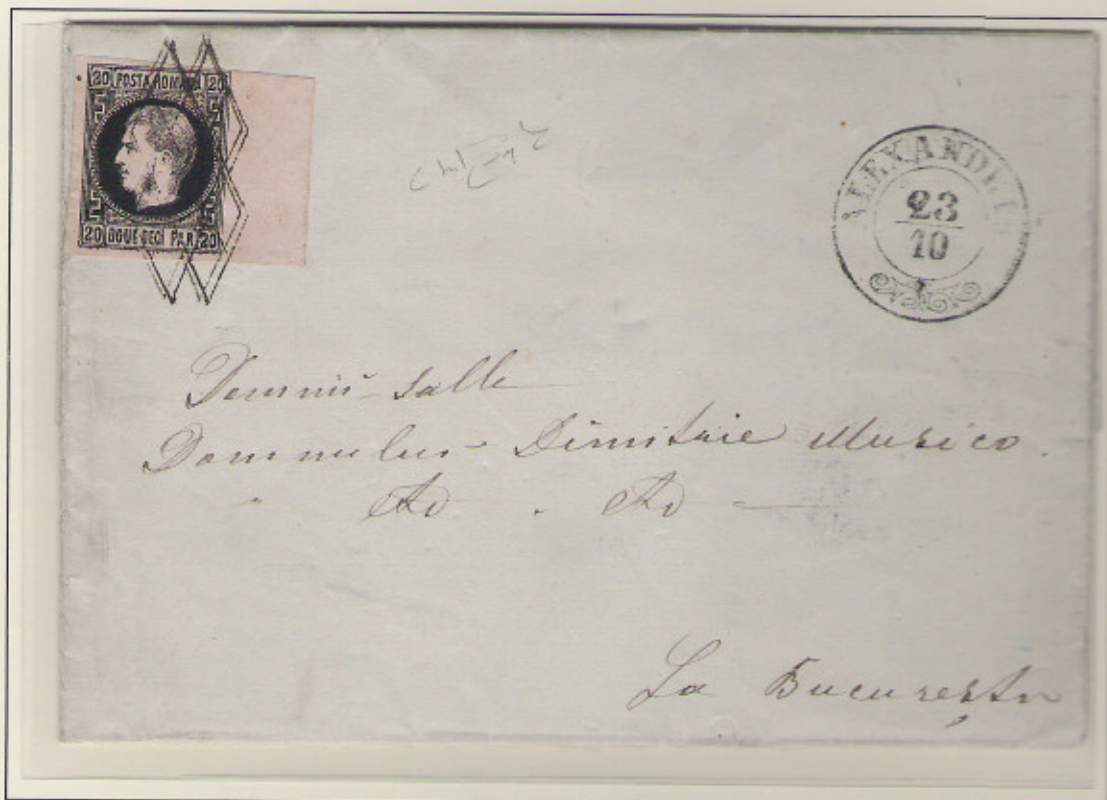 20 POSTA ROMANA 20
20 DOUE-DECI PAR. 20
ALEXANDRIA
23
10
Domnii-Salle
Domnului Dimitrie Musico.
La Bucuresti